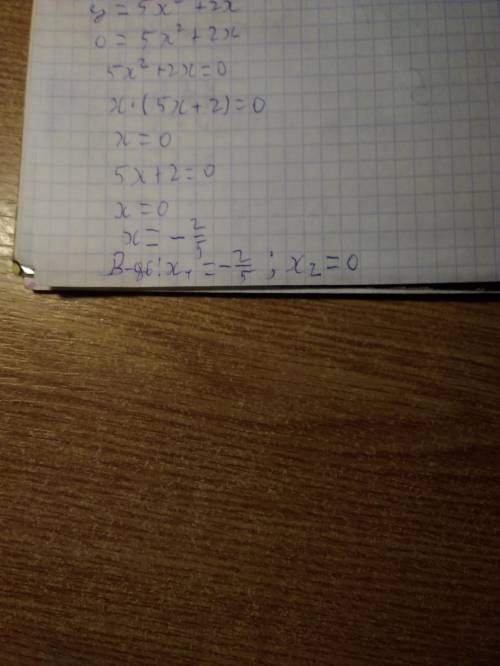 y = 5x² + 2x
0 = 5x² + 2x
5x² + 2x = 0
x · (5x + 2) = 0
x = 0
5x + 2 = 0
x = 0
x = - 2/5
В-дь: x₁ = - 2/5 ; x₂ = 0